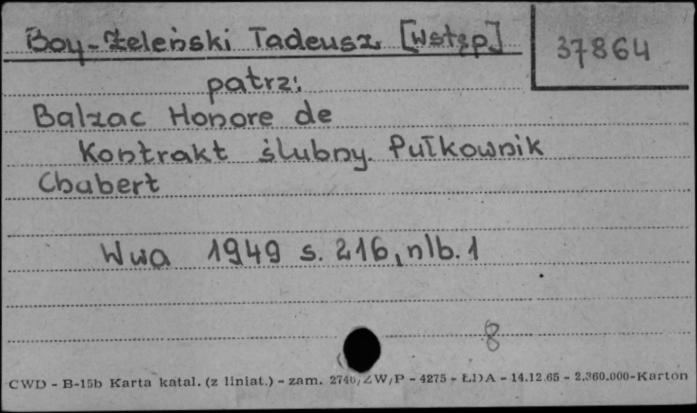 Boy-Żeleński Tadeusz [Wstęp]
37864
patrz:
Balzac Honore de
Kontrakt ślubny. Pułkownik
Chabert
Wwa 1949 s. 216, nlb. 1
8
CWD - B-15b Karta katal. (z liniat.) - zam. 2746/ZW/P - 4275 - ŁDA - 14.12.65 - 2.360.000-Karton